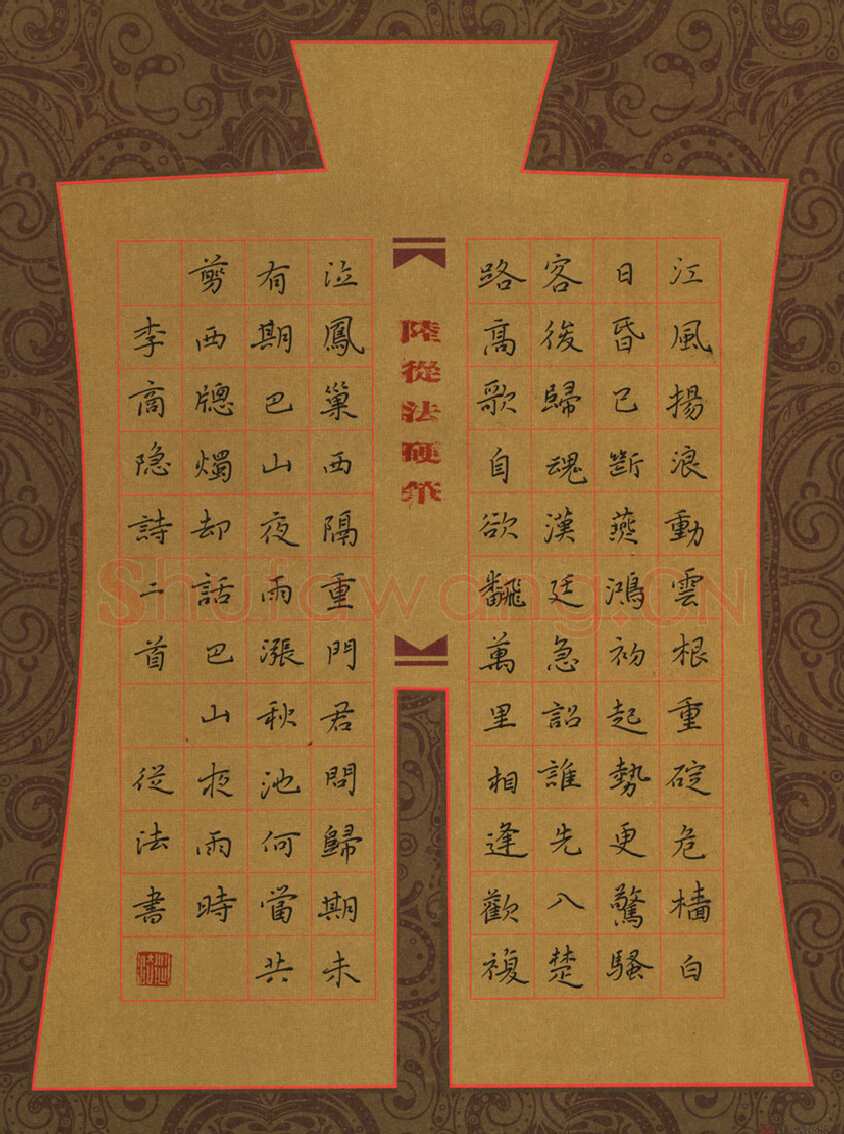 江風揚浪動雲根重碇危檣白
日昏已斷燕鴻初起勢更驚騷
客後歸魂漢廷急詔誰先入楚
路高歌自欲飜萬里相逢歡複
陸從法硬筆
泣鳳巢西隔重門君問歸期未
有期巴山夜雨漲秋池何當共
剪西牕燭却話巴山夜雨時
李商隐詩二首 從法書
Shufawang.CN